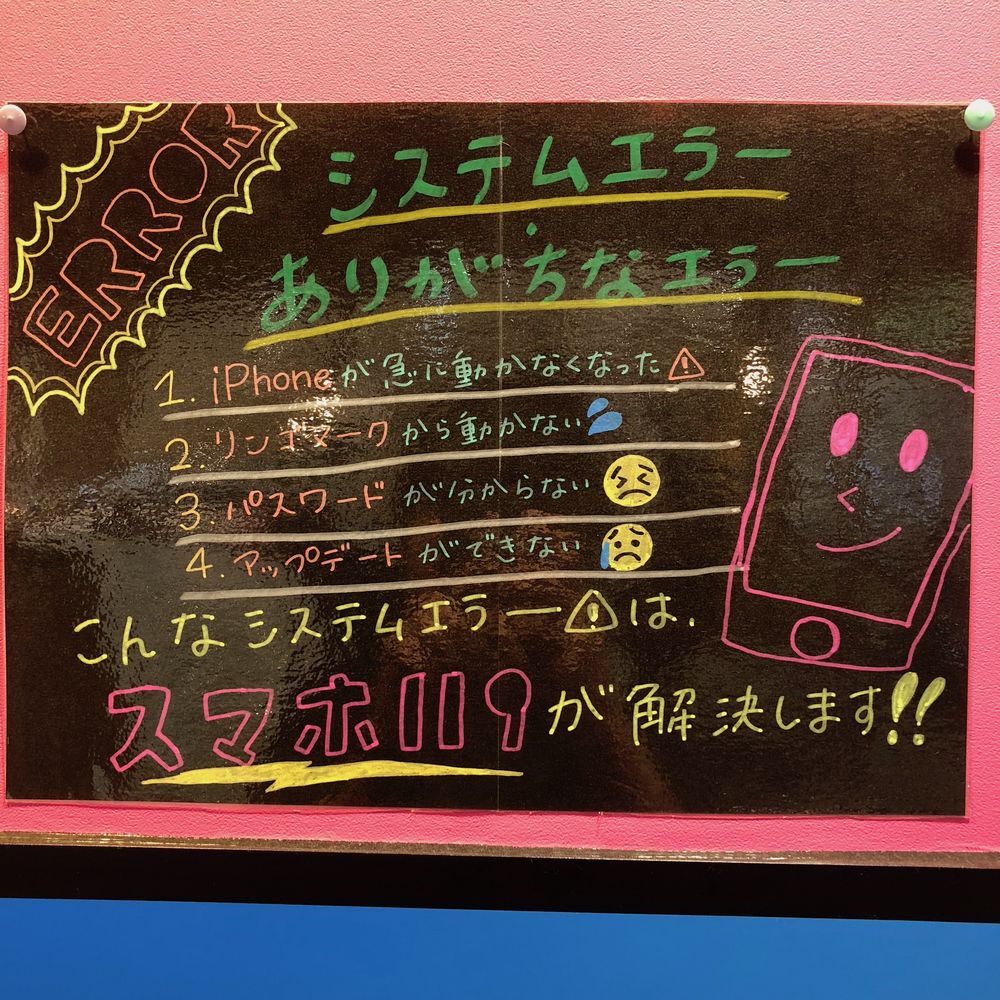 ERROR
システムエラー
・
ありがちなエラー
1. iPhoneが急に動かなくなった⚠
2. リンゴマークから動かない💦
3. パスワードが分からない😣
4. アップデートができない😥
こんなシステムエラー⚠は、
スマホ119が解決します!!